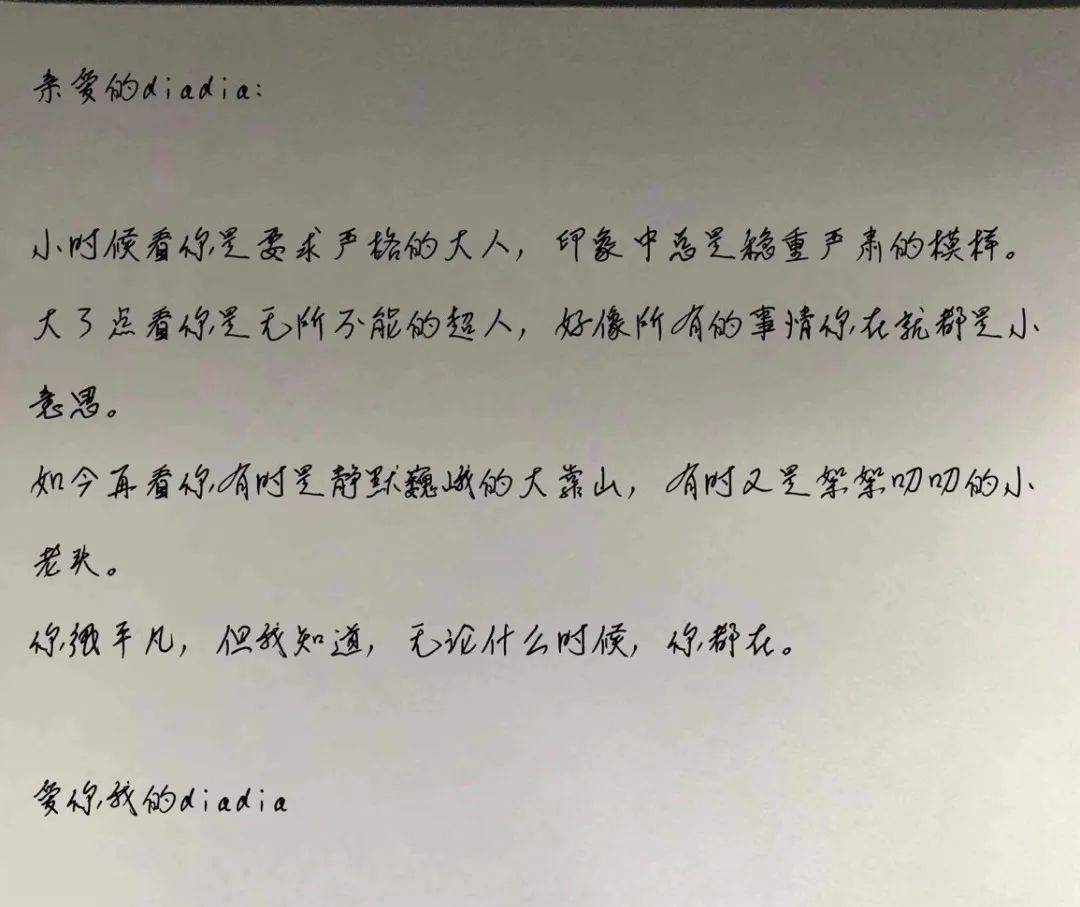 亲爱的diadia:
小时候看你是要求严格的大人，印象中总是稳重严肃的模样。
大了点看你是无所不能的超人，好像所有的事情你在就都是小
意思。
如今再看你有时是静默巍峨的大靠山，有时又是絮絮叨叨的小
老头。
你很平凡，但我知道，无论什么时候，你都在。
爱你我的diadia